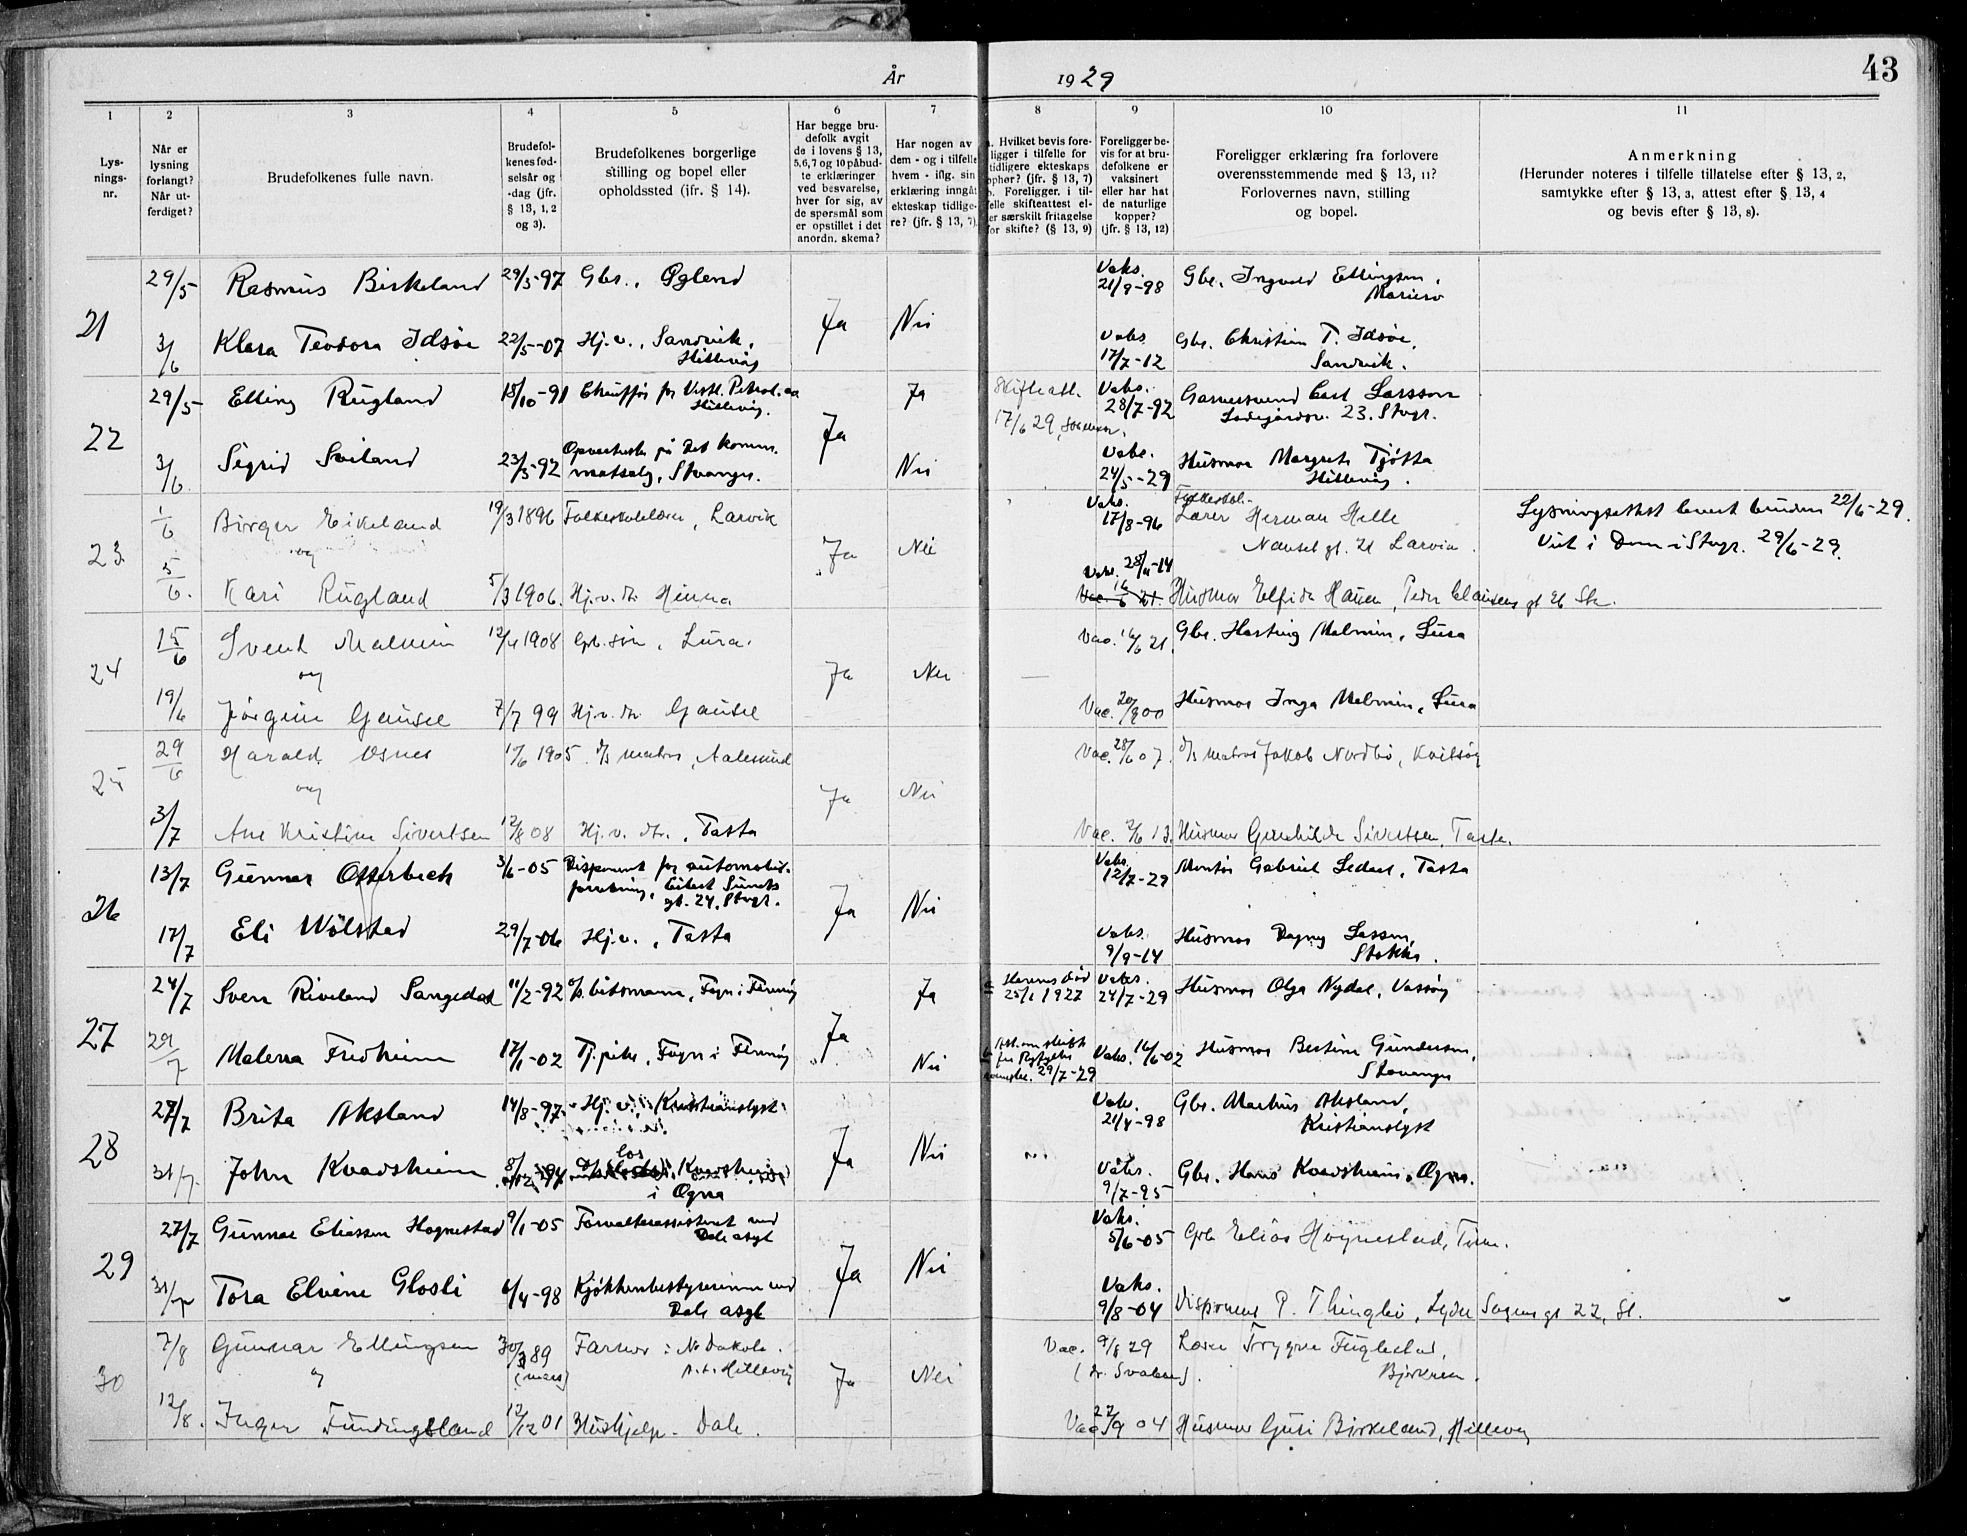 År 1929
43
1
2
3
4
5
6
7
8
9
10
11
Lys-
nings-
nr.
Når er
lysning
forlangt?
Når ut-
ferdiget?
Brudefolkenes fulle navn.
Brudefol-
kenes fød-
selsår og
-dag (jfr.
§ 13, 1, 2
og 3).
Brudefolkenes borgerlige
stilling og bopel eller
opholdssted (jfr. § 14).
Har begge bru-
defolk avgit
de i lovens § 13,
5, 6, 7 og 10 påbud-
te erklæringer
ved besvarelse,
hver for sig, av
de spørsmål som
er opstillet i det
anordn. skema?
Har nogen av
dem - og i tilfelle
hvem - iflg. sin
erklæring inngåt
ekteskap tidlige-
re? (jfr. § 13, 7).
Hvilket bevis fore-
ligger i tilfelle for
tidligere ekteskaps
opher? (jfr. § 13, 7)
b. Foreligger, i til-
felle skifteattest el-
er særskilt fritagelse
for skifte? (§ 13, 9)
Foreligger be-
vis for at bru-
defolkene er
vaksinert
eller har hat
de naturlige
kopper?
(jfr. § 13, 12)
Foreligger erklæring fra forlovere
overensstemmende med § 13, 11?
Forlovernes navn, stilling
og bopel.
Anmerkning
(Herunder noteres i tilfelle tillatelse efter § 13, 2,
samtykke efter § 13, 3, attest efter § 13, 4
og bevis efter § 13, 8).
21
29/5 Rasmus Birkeland 29/3-97 Gbr., Øglend
Vaks. 21/9-98
Gbr. Ingvald Ellingsen,
Mariero
Ja Nei
3/6 Klara Teodora Idsøe 22/5-07 Hj.v., Sandvik,
Hillevåg
Vaks. 17/7-12
Gbr. Christian T. Idsøe,
Sandvik.
22
29/5 Elling Rugland 18/10-91 Chauffør for Vestl. Petrol.
Hillevåg.
Ja Ja
Skifteatt.
17/6 29,
Vaks. 28/7-92
Carl Larsson
Ladegårdsv. 23. Stvgr.
3/6 Sigrid Sviland 23/3-92 Opvarterske på Det komm.
matsalg, Stvanger.
Nei
Vaks. 24/5-29
Husmor Margrete Tjøtta
Hillevåg.
23
1/6 Birger Eikeland 19/3 1896 Folkeskolelærer, Larvik
og
Ja Nei
Vaks. 17/8-96
Folkeskol.
Lærer Herman Helle
Nansetgt. 21 Larvik.
Lysningsattest levert bruden 22/6-29.
Viet i Dom i Stvgr. 29/6-29.
5/6. Kari Rugland 5/3 1906. Hj.v. dtr. Hinna
Vaks. 28/4-14
Husmor Elfrida Hauen, Peder Claussens gt 26 Stv.
24
15/6 Svend Malmin 12/4 1908 Gb. søn, Lura.
og
Ja Nei
Vac. 16/6 21.
Gbr. Hasting Malmin, Lura
19/6 Jørgine Gausel 7/7 99 Hj.v. dtr. Gausel
Vac. 20/9 00
Husmor Inga Malmin, Lura
25
29/6 Harald Osnes 17/6 1905 d/s matros, Aalesund
og
Ja Nei
Vac. 28/6 07.
d/s matros Jakob Nordbø, Kvitsøy
3/7 Ane Kristine Sivertsen 12/8 08 Hj.v. dtr., Tasta
Vac. 2/6 13.
Husmor Gunhilde Sivertsen, Tasta.
26
13/7 Gunnar Otterbech 3/6-05 Disponent for automobil-
forretning, Eilert Sundts
gt. 24, Stvgr.
Ja Nei
Vaks. 12/7-29
Montør Gabriel Sedal, Tasta
17/7 Eli Wølstad 29/7-06 Hj.v., Tasta
Vaks. 9/9-14
Husmor Dagny Lassen,
Stokka.
27
24/7 Sven Riveland Sangedal 11/2-92 Fogn i Finnøy
Ja Ja
a Konens død
25/1 1927
Vaks. 24/7-29
Husmor Olga Nydal, Vassøy
29/7 Malena Fredheim 17/1-02 Tj.pike, Fogn i Finnøy
Nei
b Att. om skifte
fra Ryfylke
29/7-29
Vaks. 16/6-02
Husmor Bertine Gundersen,
Stavanger
28
27/7 Brita Aksland 14/8-97 Hj.v., Kristianslyst
Ja Nei
Vaks. 21/4-98
Gbr. Markus Aksland,
Kristianslyst
31/7. John Kvadsheim 8/12-94 los Kvadsheim
i Ogna
Vaks. 9/7-95
Gbr. Hans Kvadsheim, Ogna.
29
27/7 Gunnar Eliassen Hognestad 9/1-05 Forvalterassistent ved
Dale asyl
Ja Nei
Vaks. 5/6-05
Gbr. Elias Hognestad, Time.
31/7 Tora Elvine Glosli 6/4-98 Kjøkkenbestyrerinne ved
Dale asyl
Vaks. 9/8-04
Disponent P. Thingbø, Lyder Sagens gt 22, St.
30
7/8 Gunnar Ellingsen 30/3 89 (mars) Farmer i No Dakota.
p.t. Hillevåg
og
Ja Nei
Vac. 9/8 29
(dr. Svaboe).
Lærer Trygve Fuglestad,
Bjerkreim.
12/8. Inger Fundingsland 12/12 01 Hushjelp - Dale.
Vac 22/9 04
Husmor Guri Birkeland, Hillevåg